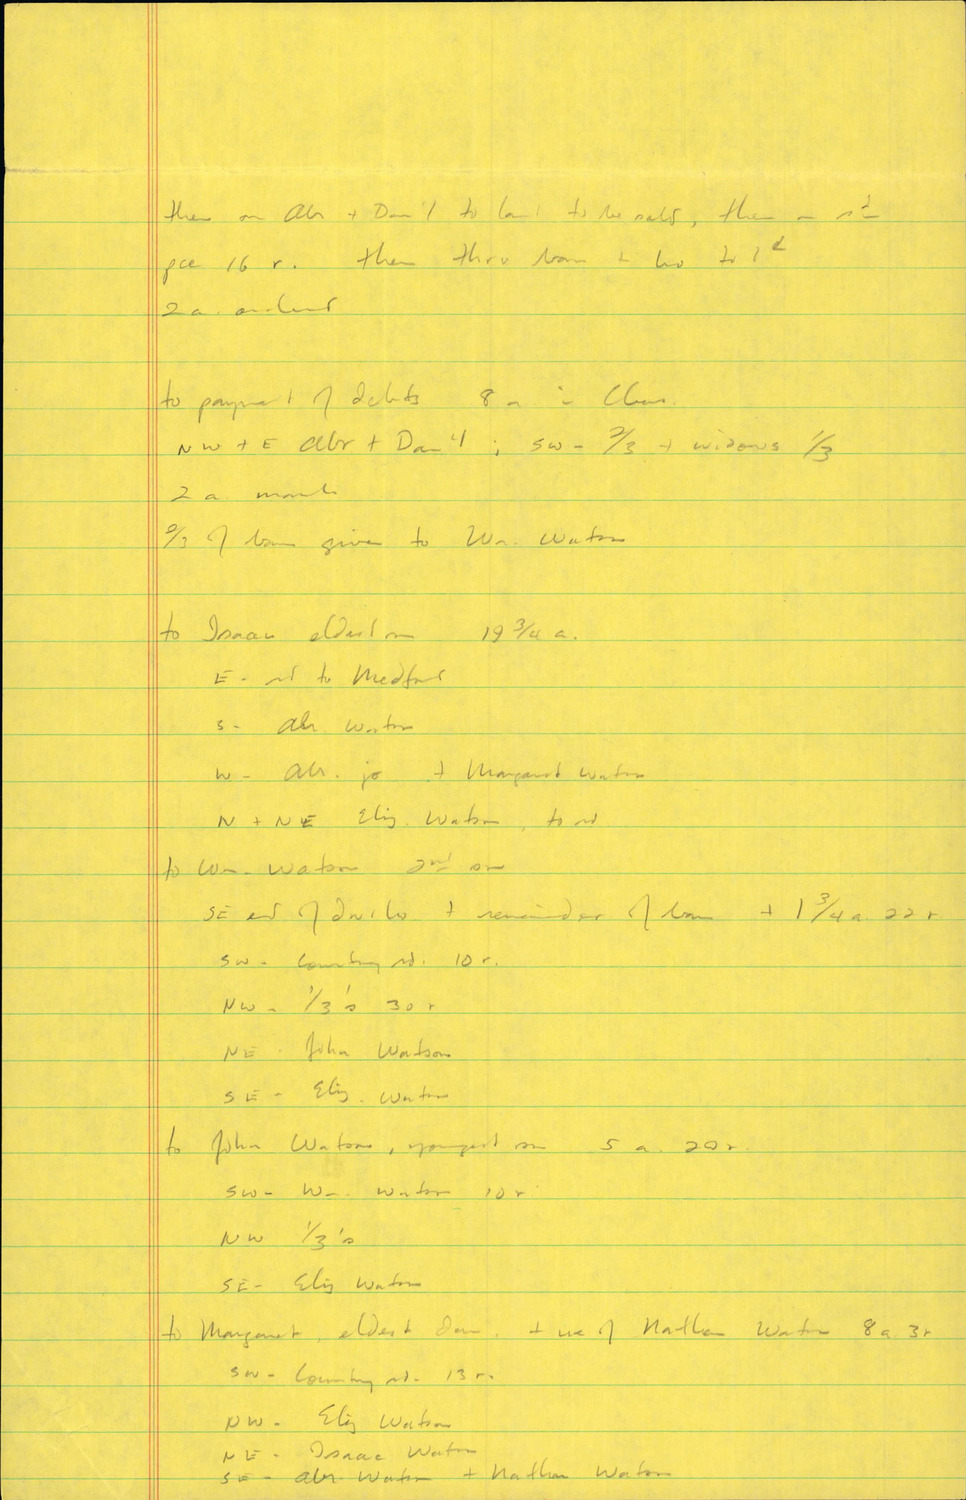 then on Abr + Dan'l to land to be sold, then on rd
pce 16 r. then thru barn + ho to 1st
2 a. orchard
to payment of debts 8 a in Cham.
NW + E Abr + Dan'l ; SW - 2/3 + widows 1/3
2 a marsh
2/3 of barn given to Wm. Watson
to Isaac eldest son 19 3/4 a.
E - rd to Medford
S - Abr Watson
W - Abr. jr + Margaret Watson
N + NE Eliz. Watson, to rd
to Wm. Watson 2nd son
SE end of dw. ho + remainder of barn + 1 3/4 a 22 r
SW - Country rd. 10 r.
NW - 1/3's 30 r
NE - John Watson
SE - Eliz. Watson
to John Watson, youngest son 5 a 20 r.
SW - Wm. Watson 10 r
NW 1/3's
SE - Eliz Watson
to Margaret, eldest dau, + ux of Nathan Watson 8 a 3 r
SW - Country rd. 13 r.
NW - Eliz Watson
NE - Isaac Watson
SE - Abr. Watson + Nathan Watson